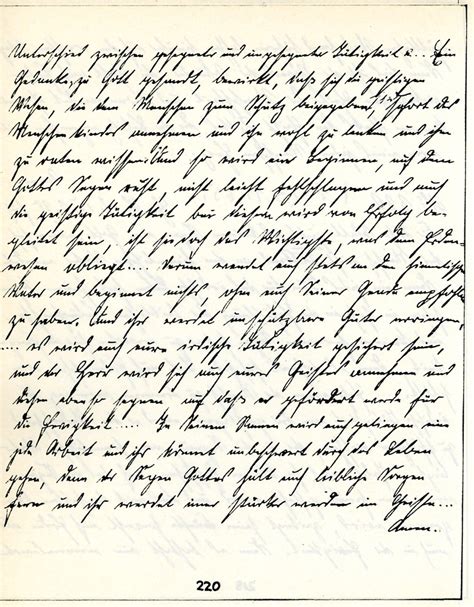 Unterschied zwischen gesegneter und ungesegneter Tätigkeit .... Ein
Gedanke, zu Gott gesandt, bewirkt, daß sich die geistigen
Wesen, die dem Menschen zum Schutz beigegeben, sofort des
Menschenkindes annehmen und ihn wohl zu lenken und ihm
zu raten wissen. Und so wird ein Beginnen, auf dem
Gottes Segen ruht, nicht leicht fehlschlagen und auch
die geistige Tätigkeit bei diesem wird von Erfolg be-
gleitet sein, ist sie doch das Wichtigste, was dem Erden-
wesen obliegt .... Darum wendet euch stets an den himmlischen
Vater und beginnet nichts, ohne euch Seiner Gnade empfohlen
zu haben. Und ihr werdet unschätzbare Güter erringen,
.... es wird auch eure irdische Tätigkeit gesichert sein,
und der Herr wird sich auch eures Geistes annehmen und
diesen ebenso segnen auf daß er gefördert werde für
die Ewigkeit .... In Seinem Namen wird euch gelingen eine
jede Arbeit und ihr könnet unbeschwert durch das Leben
gehen, denn der Segen Gottes hält euch leibliche Sorgen
fern und ihr werdet immer stärker werden im Geiste ....
Amen.
220